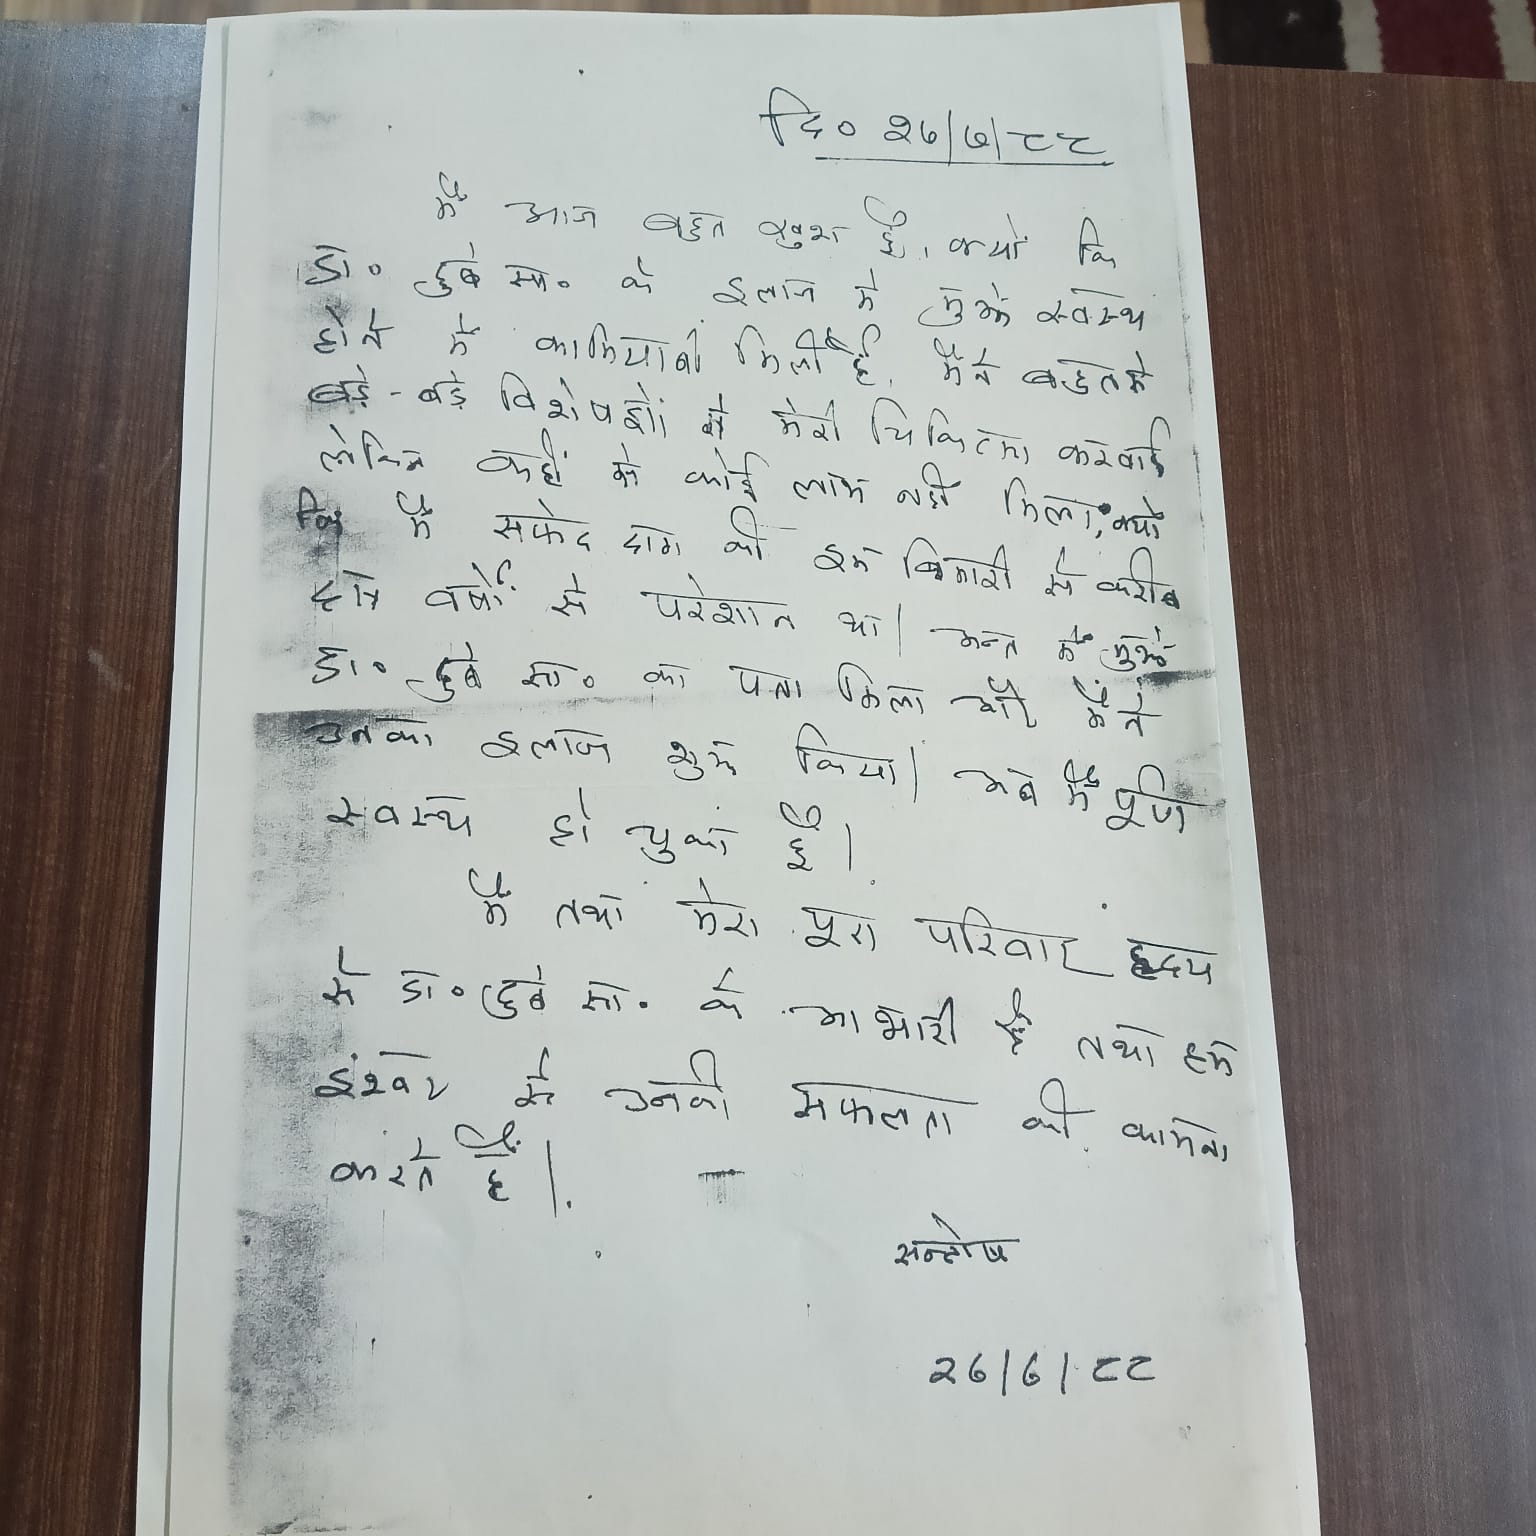 दि० २७/७/८८
मैं आज बहुत खुश हूँ, क्यों कि
डा० दुबे सा० के इलाज से मुझे स्वस्थ
होने में कामियाबी मिली है, मैंने बहुत से
बड़े-बड़े विशेषज्ञों से मेरी चिकित्सा करवाई
लेकिन कहीं से कोई लाभ नहीं मिला, क्यों
कि मैं सफेद दाग की इस बिमारी से करीब
वर्षों से परेशान था। अन्त में मुझे
डा० दुबे सा० का पता मिला और मैंने
उनका इलाज शुरू किया। अब मैं पूर्ण
स्वस्थ हो चुका हूँ।
मैं तथा मेरा पूरा परिवार ह्रदय
से डा० दुबे सा० के आभारी हैं तथा हम
इश्वर से उनकी सफलता की कामना
करते हैं।
सन्तोष
२७/७/८८